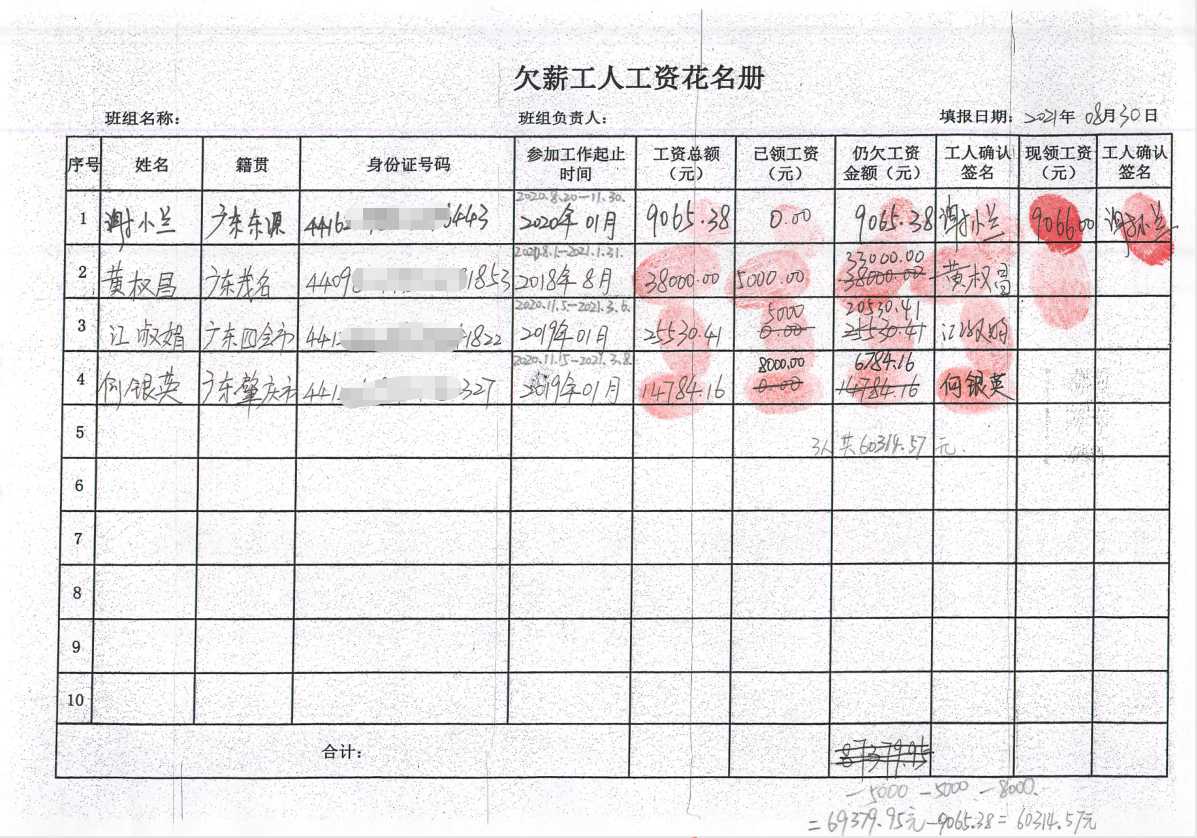 欠薪工人工资花名册
班组名称： 班组负责人： 填报日期：2021年 08月30日
序号 姓名 籍贯 身份证号码 参加工作起止时间 工资总额（元） 已领工资（元） 仍欠工资金额（元） 工人确认签名 现领工资（元） 工人确认签名
2020.8.20—11.30.
1 谢小兰 广东东源 4416 3443 2020年01月 9065.38 0.00 9065.38 谢小兰 9066.00 谢小兰
2020.8.1—2021.1.31. 33000.00
2 黄权昌 广东茂名 4409 1853 2018年8月 38000.00 5000.00 38000.00 黄权昌
2020.11.5—2021.3.6. 5000 20530.41
3 江淑娟 广东四会市 441 1822 2019年01月 25530.41 0.00 25530.41 江淑娟
2020.11.15—2021.3.8. 8000.00 6784.16
4 何银英 广东肇庆市 441 327 2019年01月 14784.16 0.00 14784.16 何银英
5 3人共60314.57元.
6
7
8
9
10
合计： 87379.95
—5000 —5000 —8000.
=69379.95元—9065.38=60314.57元